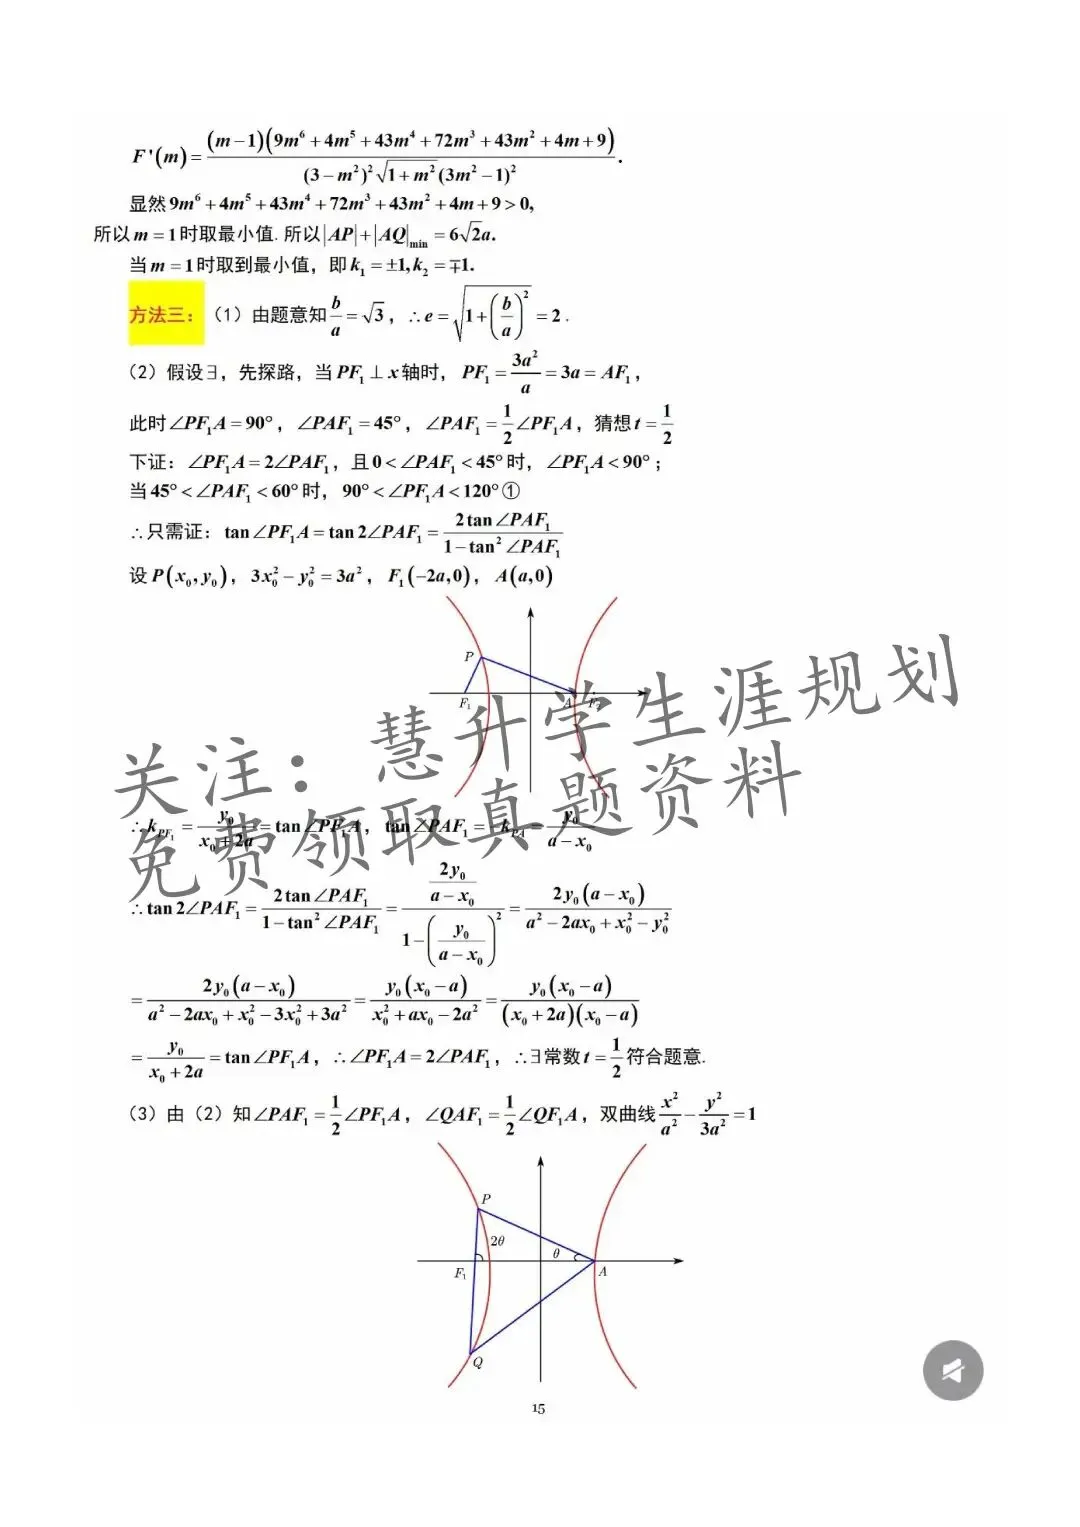 F'(m)=\frac{(m-1)(9m^6+4m^5+43m^4+72m^3+43m^2+4m+9)}{(3-m^2)^2\sqrt{1+m^2}(3m^2-1)^2}.
显然9m^6+4m^5+43m^4+72m^3+43m^2+4m+9>0,
所以m=1时取最小值.所以|AP|+|AQ|_{min}=6\sqrt{2}a.
当m=1时取到最小值，即k_1=±1,k_2=∓1.
方法三：（1）由题意知\frac{b}{a}=\sqrt{3}，∴e=\sqrt{1+(\frac{b}{a})^2}=2.
（2）假设∃，先探路，当PF_1⊥x轴时，PF_1=\frac{3a^2}{a}=3a=AF_1，
此时∠PF_1A=90°，∠PAF_1=45°，∠PAF_1=\frac{1}{2}∠PF_1A，猜想t=\frac{1}{2}
下证：∠PF_1A=2∠PAF_1，且0<∠PAF_1<45°时，∠PF_1A<90°；
当45°<∠PAF_1<60°时，90°<∠PF_1A<120°①
∴只需证：tan∠PF_1A=tan2∠PAF_1=\frac{2tan∠PAF_1}{1-tan^2∠PAF_1}
设P(x_0,y_0)，3x_0^2-y_0^2=3a^2，F_1(-2a,0)，A(a,0)
P
F_1 A F_2
关注：慧升学生涯规划
免费领取真题资料
∴k_{PF_1}=\frac{y_0}{x_0+2a}=tan∠PF_1A，tan∠PAF_1=-k_{PA}=\frac{y_0}{a-x_0}
∴tan2∠PAF_1=\frac{2tan∠PAF_1}{1-tan^2∠PAF_1}=\frac{\frac{2y_0}{a-x_0}}{1-(\frac{y_0}{a-x_0})^2}=\frac{2y_0(a-x_0)}{a^2-2ax_0+x_0^2-y_0^2}
=\frac{2y_0(a-x_0)}{a^2-2ax_0+x_0^2-3x_0^2+3a^2}=\frac{y_0(x_0-a)}{x_0^2+ax_0-2a^2}=\frac{y_0(x_0-a)}{(x_0+2a)(x_0-a)}
=\frac{y_0}{x_0+2a}=tan∠PF_1A，∴∠PF_1A=2∠PAF_1，∴∃常数t=\frac{1}{2}符合题意.
（3）由（2）知∠PAF_1=\frac{1}{2}∠PF_1A，∠QAF_1=\frac{1}{2}∠QF_1A，双曲线\frac{x^2}{a^2}-\frac{y^2}{3a^2}=1
P
2θ θ
F_1 A
Q
15